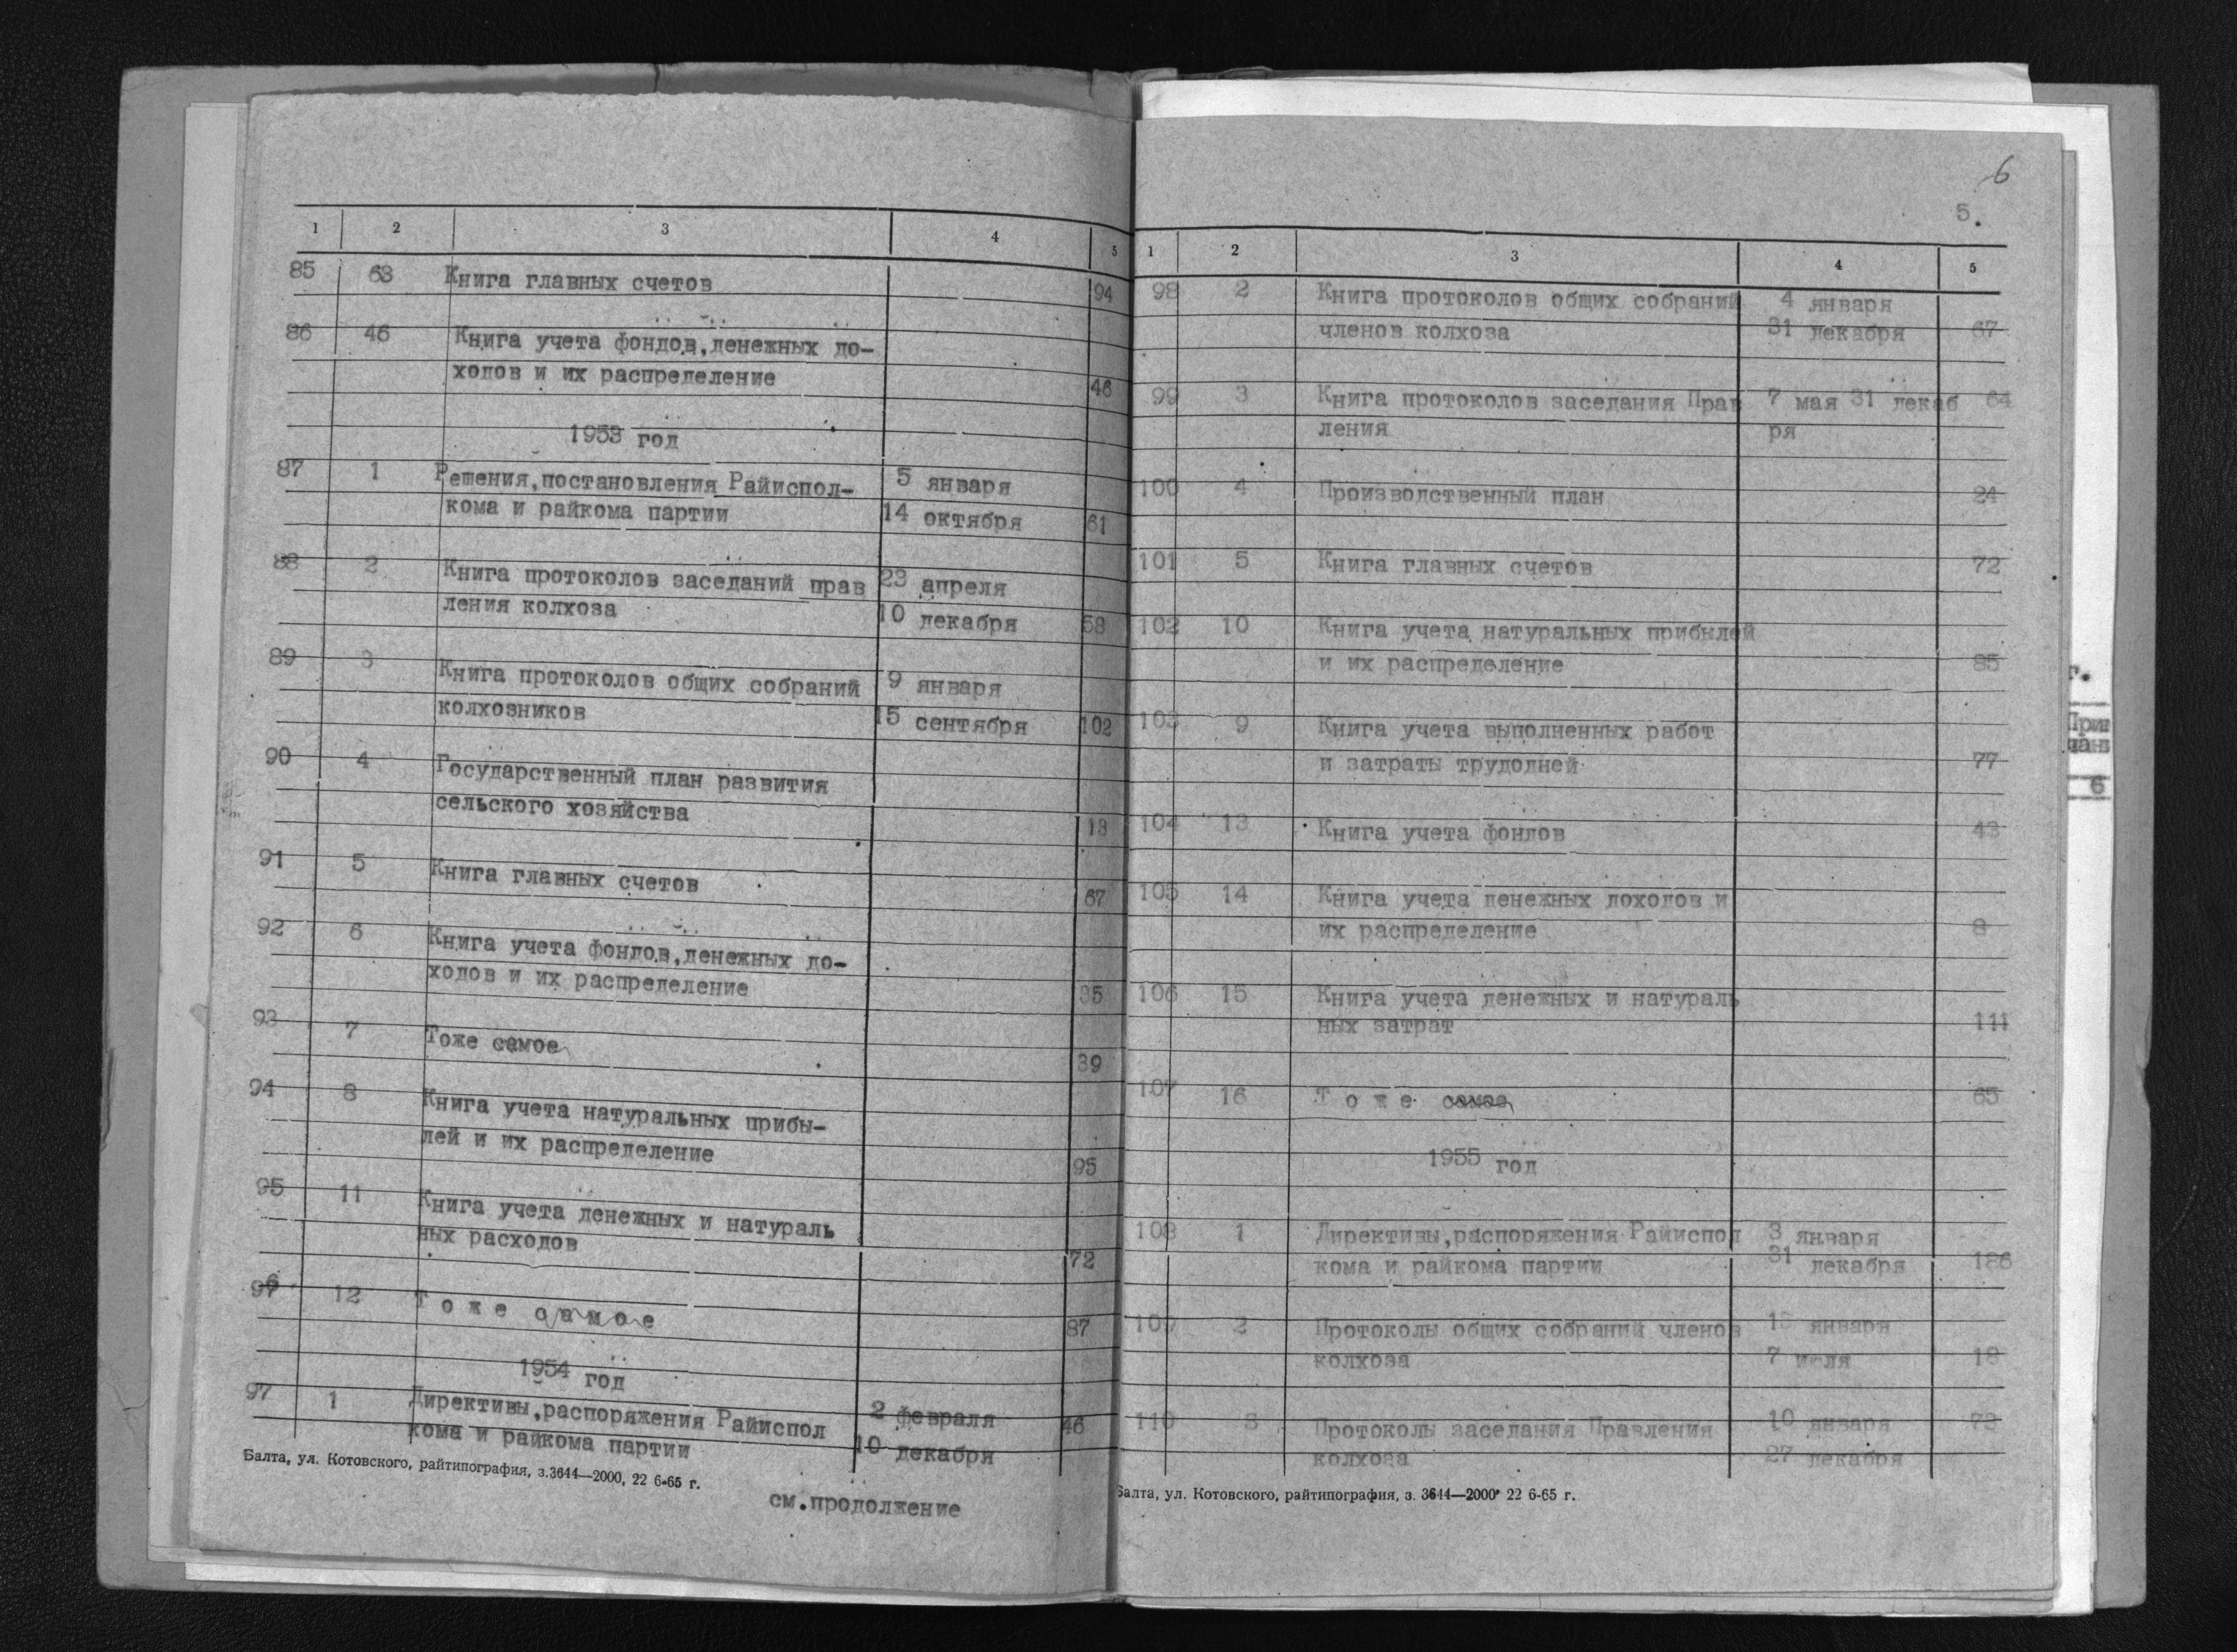 1 2 3 4 5
85 63 Книга главных счетов 94
86 46 Книга учета фондов,денежных до-
ходов и их распределение 46
1953 год
87 1 Решения,постановления Райиспол- 5 января
кома и райкома партии 14 октября 61
88 2 Книга протоколов заседаний прав 23 апреля
ления колхоза 10 декабря 58
89 3 Книга протоколов общих собраний 9 января
колхозников 15 сентября 102
90 4 Государственный план развития
сельского хозяйства 13
91 5 Книга главных счетов 67
92 6 Книга учета фондов,денежных до-
ходов и их распределение 35
93 7 Тоже самое 39
94 8 Книга учета натуральных прибы-
лей и их распределение 95
95 11 Книга учета денежных и натураль
ных расходов 72
96 12 Т о ж е с а м о е 87
1954 год
97 1 Директивы,распоряжения Райиспол 2 февраля 46
кома и райкома партии 10 декабря
Балта, ул. Котовского, райтипография, з.3644—2000, 22 6-65 г.
см.продолжение
6
5.
1 2 3 4 5
98 2 Книга протоколов общих собраний 4 января
членов колхоза 31 декабря 67
99 3 Книга протоколов заседания Прав 7 мая 31 декаб 64
ления ря
100 4 Производственный план 24
101 5 Книга главных счетов 72
102 10 Книга учета натуральных прибылей
и их распределение 85
103 9 Книга учета выполненных работ
и затраты трудодней 77
104 13 Книга учета фондов 43
105 14 Книга учета денежных доходов и
их распределение 8
106 15 Книга учета денежных и натураль
ных затрат 111
107 16 Т о ж е самое 65
1955 год
108 1 Директивы,распоряжения Райиспол 3 января
кома и райкома партии 31 декабря 186
109 2 Протоколы общих собраний членов января
колхоза 7 июля 18
110 3 Протоколы заседания Правления 10 января 73
колхоза 27 декабря
Балта, ул. Котовского, райтипография, з. 3644—2000 22 6-65 г.
г.
6